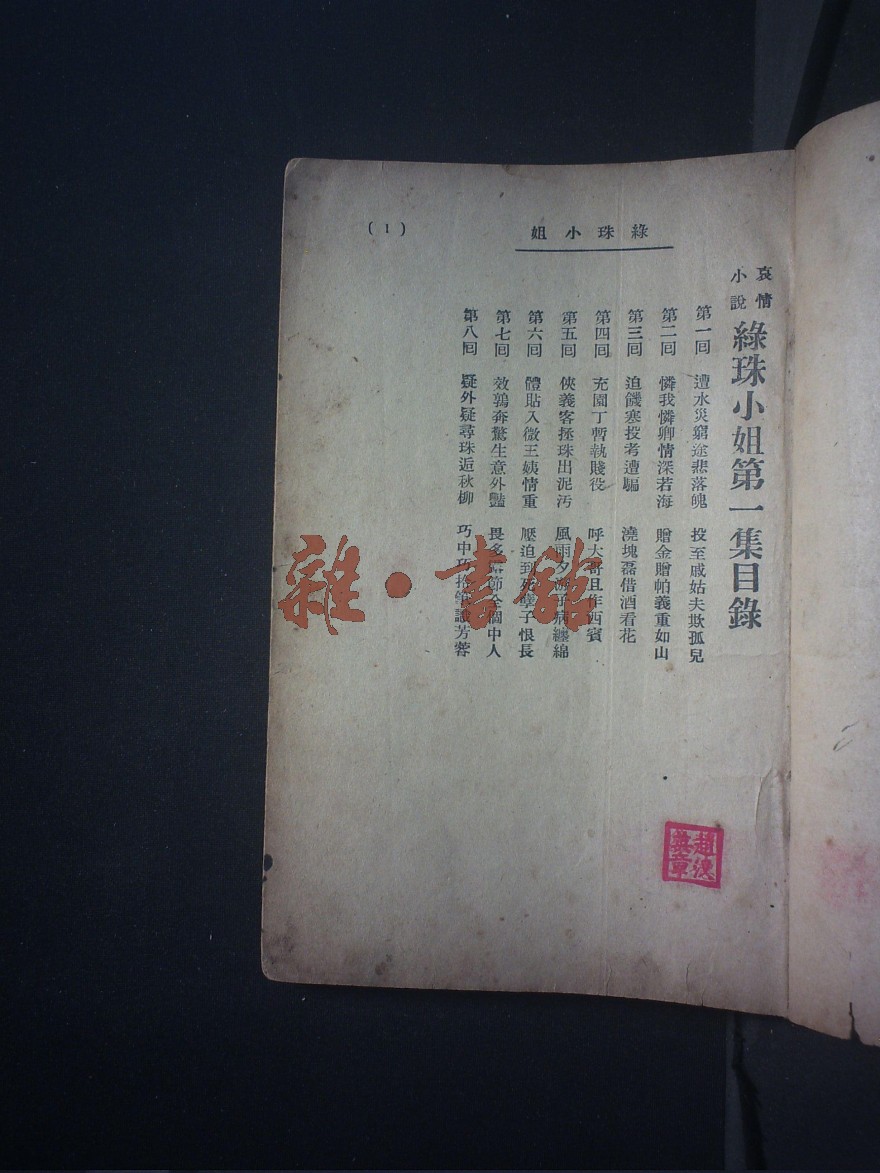 綠珠小姐
(1)
哀情小說
綠珠小姐第一集目錄
第一囘 遭水災窮途悲落魄 投至戚姑夫欺孤兒
第二囘 憐我憐卿情深若海 贈金贈帕義重如山
第三囘 迫饑寒投考遭騙 澆塊磊借酒看花
第四囘 充園丁暫執賤役 呼大哥且作西賓
第五囘 俠義客拯珠出泥汚 風雨夕 病纏綿
第六囘 體貼入微王姨情重 壓迫到死孽子恨長
第七囘 效鶉奔驚生意外豔 畏多 節全個中人
第八囘 疑外疑尋珠逅秋柳 巧中巧 芳蓉
雜·書館
趙
章